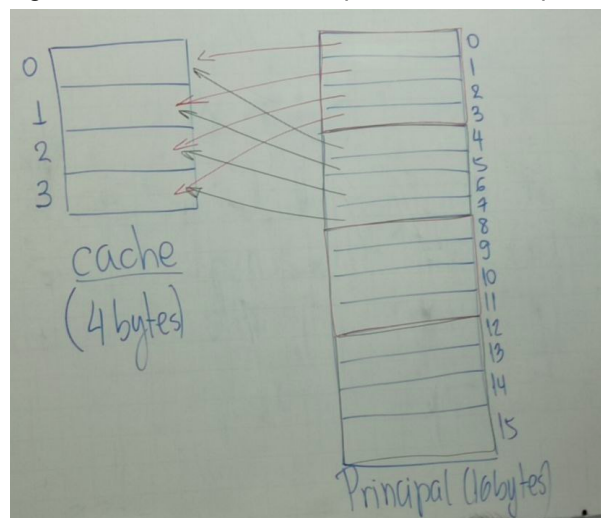 0
1
2
3
cache
(4 bytes)
0
1
2
3
4
5
6
7
8
9
10
11
12
13
14
15
Principal (16 bytes)